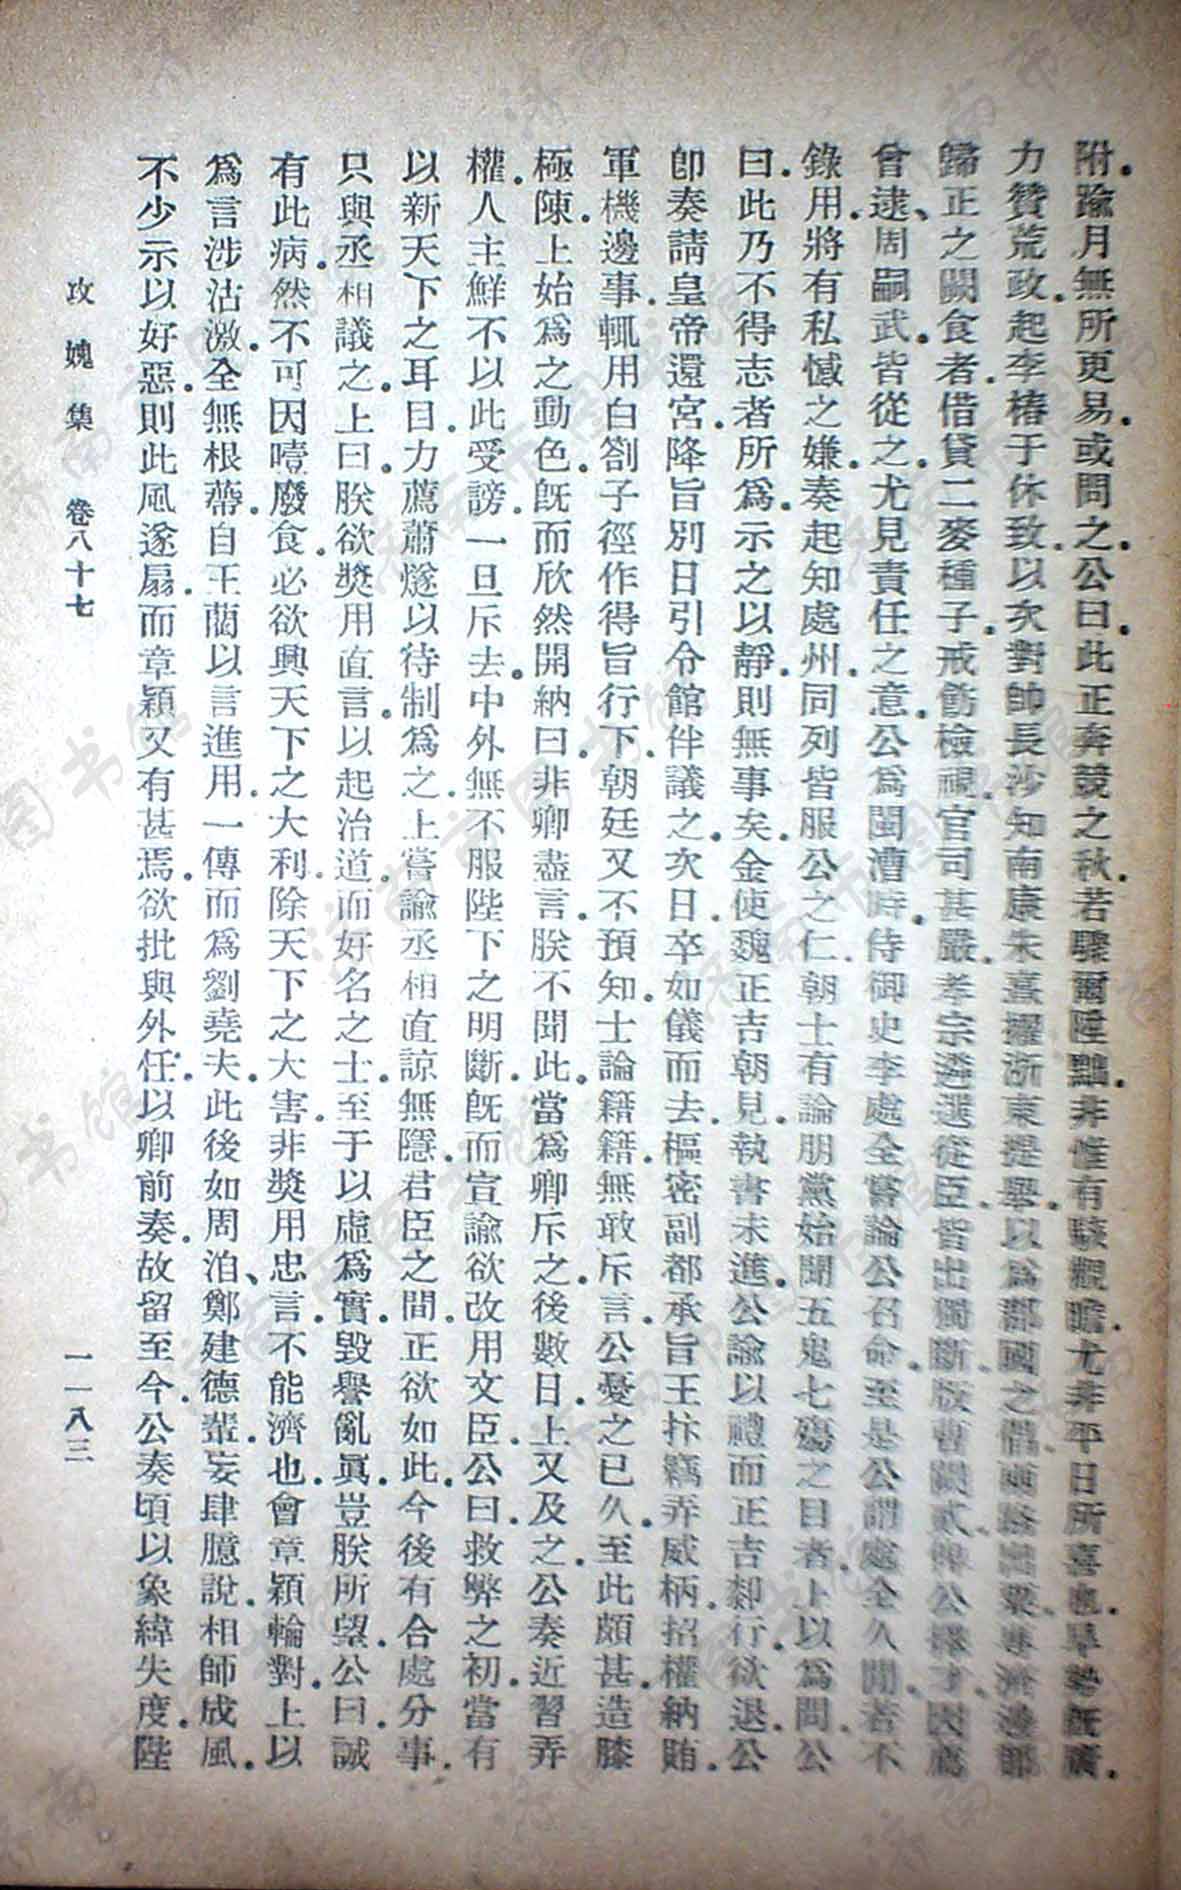 附．踰月無所更易．或問之．公曰．此正奔競之秋．若驟爾陞黜．非惟有駭觀瞻．尤非平日所喜也．旱勢旣廣．
力贊荒政．起李椿于休致．以次對帥長沙．知南康朱熹擢浙東提舉．以爲郡國之倡．兩路出粟．專濟邊郡
歸正之闕食者．借貸二麥種子．戒飭檢視．官司甚嚴．孝宗遴選從臣．皆出獨斷．版曹闕貳．公因薦
曾逮、周嗣武．皆從之．尤見責任之意．公爲閩漕時．侍御史李處全嘗論公召命．至是公謂處全久閒．若不
錄用．將有私憾之嫌．奏起知處州．同列皆服公之仁．朝士有論朋黨．始聞五鬼七殤之目者．上以爲問．公
曰．此乃不得志者所爲．示之以靜．則無事矣．金使魏正吉朝見．執書未進．公諭以禮．而正吉卻行．欲退．公
卽奏請皇帝還宮．降旨別日引．令館伴議之．次日．卒如儀而去．樞密副都承旨王抃竊弄威柄．招權納賄．
軍機邊事．輒用白劄子徑作得旨行下．朝廷又不預知．士論籍籍．無敢斥言．公憂之已久．至此頗甚．造膝
極陳．上始爲之動色．旣而欣然開納曰．非卿盡言．朕不聞此．當爲卿斥之．後數日．上又及之．公奏近習弄
權．人主鮮不以此受謗．一旦斥去．中外無不服陛下之明斷．旣而宣諭欲改用文臣．公曰．救弊之初．當有
以新天下之耳目．力薦蕭燧以待制爲之．上嘗諭丞相直諒無隱．君臣之間．正欲如此．今後有合處分事．
只與丞相議之．上曰．朕欲獎用直言．以起治道．而好名之士．至于以虛爲實．毀譽亂眞．豈朕所望．公曰．誠
有此病．然不可因噎廢食．必欲興天下之大利．除天下之大害．非獎用忠言．不能濟也．會章穎輪對．上以
爲言涉沽激．全無根蔕．自王藺以言進用．一傳而爲劉堯夫．此後如周洎、鄭建德輩．妄肆臆說．相師成風．
不少示以好惡．則此風遂扇．而章穎又有甚焉．欲批與外任．以卿前奏．故留至今．公奏．頃以象緯失度．陛
攻媿集 卷八十七 一一八三